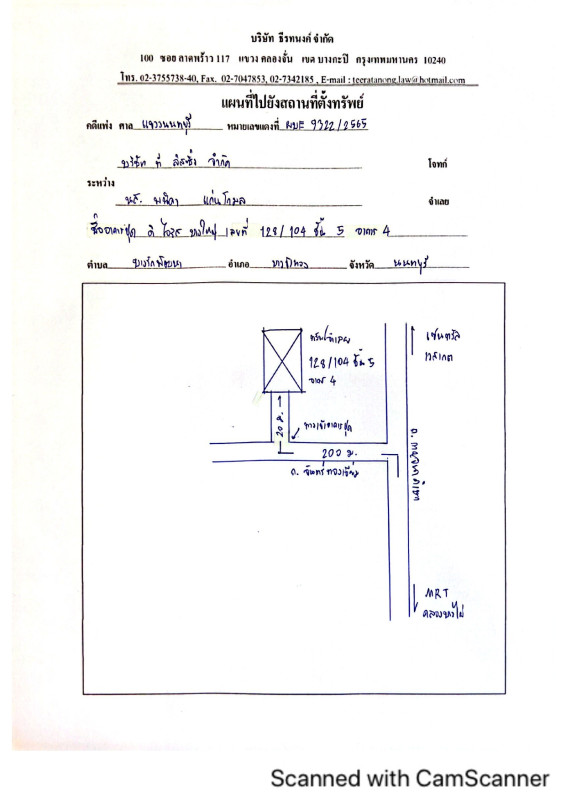 บริษัท ธีรทนงค์ จำกัด
100 ซอย ลาดพร้าว 117 แขวง คลองจั่น เขต บางกะปิ กรุงเทพมหานคร 10240
โทร. 02-3755738-40, Fax. 02-7047853, 02-7342185 , E-mail : teeratanong.law@hotmail.com
แผนที่ไปยังสถานที่ตั้งทรัพย์
คดีแพ่ง ศาล แขวงนนทบุรี หมายเลขแดงที่ ผบE 9322/2565
บริษัท ที ลิสซิ่ง จำกัด โจทก์
ระหว่าง
นส. พนิดา แก่นโกมล จำเลย
ชื่ออาคารชุด ดิ ไอริส บางใหญ่ เลขที่ 128/104 ชั้น 5 อาคาร 4
ตำบล บางรักพัฒนา อำเภอ บางบัวทอง จังหวัด นนทบุรี
ทรัพย์จำเลย
128/104 ชั้น 5
อาคาร 4
เซนทรัล
เวสเกต
20 ม.
ทางเข้าอาคารชุด
200 ม.
ถ. จันทร์ทองเอี่ยม
ถ. กาญจนาภิเษก
MRT
คลองบางไผ่
Scanned with CamScanner